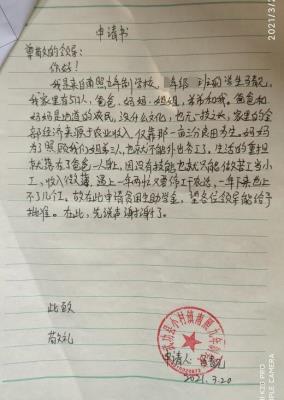 申请书
尊敬的领导：
你好！
我是来自南照九年制学校，年级 班的学生
我家里有5口人，爸爸、妈妈、姐姐、弟弟和我。爸爸和
妈妈是地道的农民，没什么文化，也无一技之长，家里的全
部经济来源于农业收入，仅靠那一亩三分良田为生。妈妈
为了照顾我们姐弟三人，也就不能外出务工了，生活的重担
就落在了爸爸一人身上，因没有技能也就只能做苦工当小
工，收入微薄，遇上一年两忙又要停工干农活，一年下来也上
不了几个工。故在此申请贫困生助学金，望各位领导能给予
批准。在此，先说声谢谢了。
此致
敬礼
申请人：
2021.3.20
2021/3/2